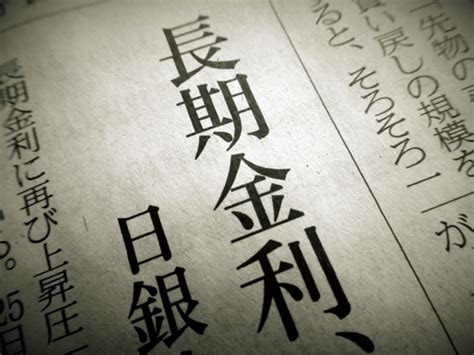 「先物の
買い戻しの規模を
ると、そろそろ二
が
長期金利、
日銀
長期金利に再び上昇圧
る。25日